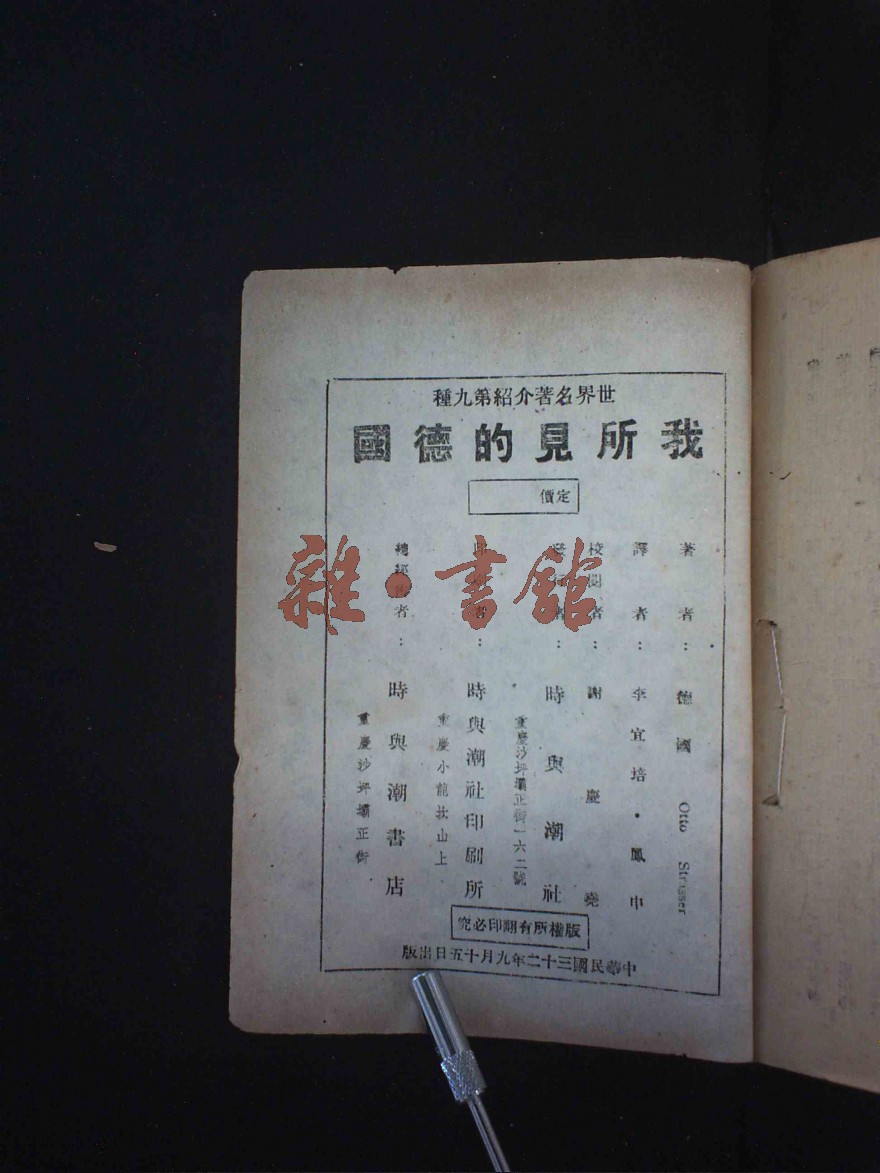 世界名著介紹第九種
我所見的德國
定價
著者：德國 Otto Strasser
譯者：李宜培・鳳中
校閱者：謝慶堯
發行者：時與潮社
重慶沙坪壩正街一六二號
印刷者：時與潮社印刷所
重慶小龍坎山上
總經售者：時與潮書店
重慶沙坪壩正街
版權所有翻印必究
中華民國三十二年九月十五日出版
雜·書館